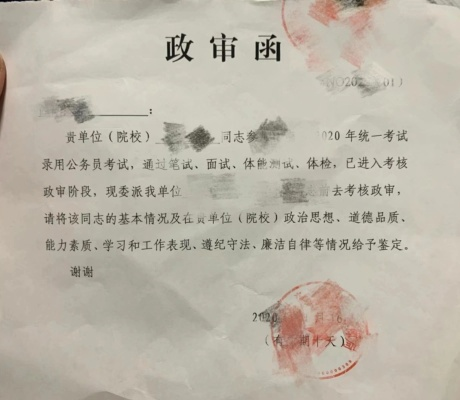 政审函
贵单位（院校） 同志参 2020 年统一考试
录用公务员考试，通过笔试、面试、体能测试、体检，已进入考核
政审阶段，现委派我单位 前去考核政审，
请将该同志的基本情况及在贵单位（院校）政治思想、道德品质、
能力素质、学习和工作表现、遵纪守法、廉洁自律等情况给予鉴定。
谢谢
2020